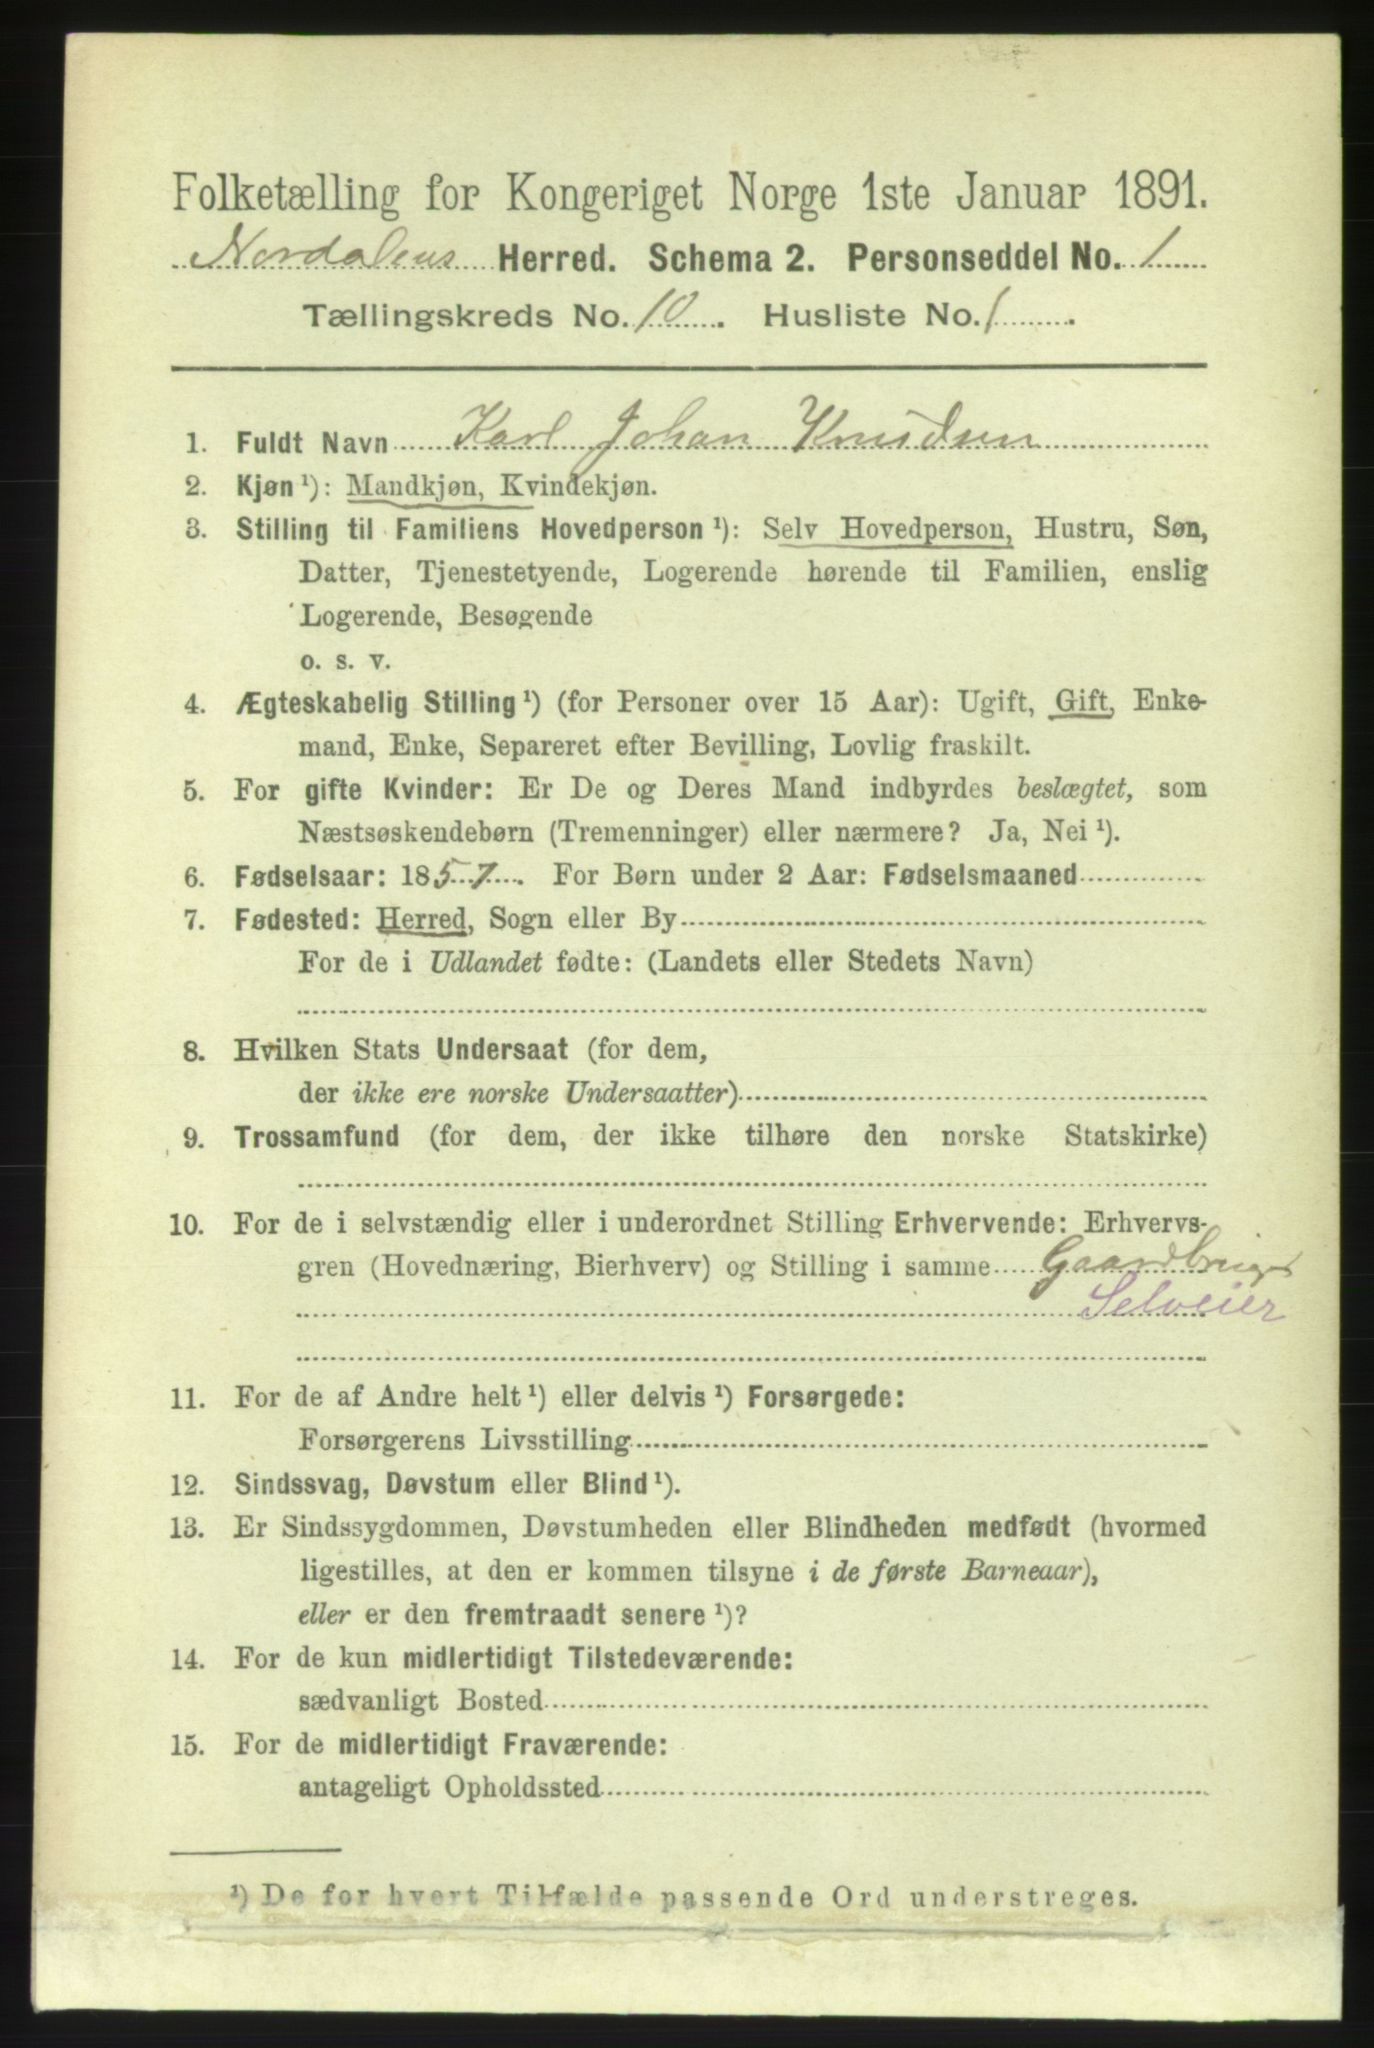 Folketælling for Kongeriget Norge 1ste Januar 1891.
Nordalens Herred. Schema 2. Personseddel No. 1
Tællingskreds No. 10. Husliste No. 1.
1. Fuldt Navn Karl Johan Knudsen
2. Kjøn¹): Mandkjøn, Kvindekjøn.
3. Stilling til Familiens Hovedperson¹): Selv Hovedperson, Hustru, Søn,
Datter, Tjenestetyende, Logerende hørende til Familien, enslig
Logerende, Besøgende
o. s. v.
4. Ægteskabelig Stilling¹) (for Personer over 15 Aar): Ugift, Gift, Enke-
mand, Enke, Separeret efter Bevilling, Lovlig fraskilt.
5. For gifte Kvinder: Er De og Deres Mand indbyrdes beslægtet, som
Næstsøskendebørn (Tremenninger) eller nærmere? Ja, Nei¹).
6. Fødselsaar: 1857. For Børn under 2 Aar: Fødselsmaaned
7. Fødested: Herred, Sogn eller By
For de i Udlandet fødte: (Landets eller Stedets Navn)
8. Hvilken Stats Undersaat (for dem,
der ikke ere norske Undersaatter)
9. Trossamfund (for dem, der ikke tilhøre den norske Statskirke)
10. For de i selvstændig eller i underordnet Stilling Erhvervende: Erhvervs-
gren (Hovednæring, Bierhverv) og Stilling i samme Gaardbruger
Selveier
11. For de af Andre helt¹) eller delvis¹) Forsørgede:
Forsørgerens Livsstilling
12. Sindssvag, Døvstum eller Blind¹).
13. Er Sindssygdommen, Døvstumheden eller Blindheden medfødt (hvormed
ligestilles, at den er kommen tilsyne i de første Barneaar),
eller er den fremtraadt senere¹)?
14. For de kun midlertidigt Tilstedeværende:
sædvanligt Bosted
15. For de midlertidigt Fraværende:
antageligt Opholdssted
¹) De for hvert Tilfælde passende Ord understreges.